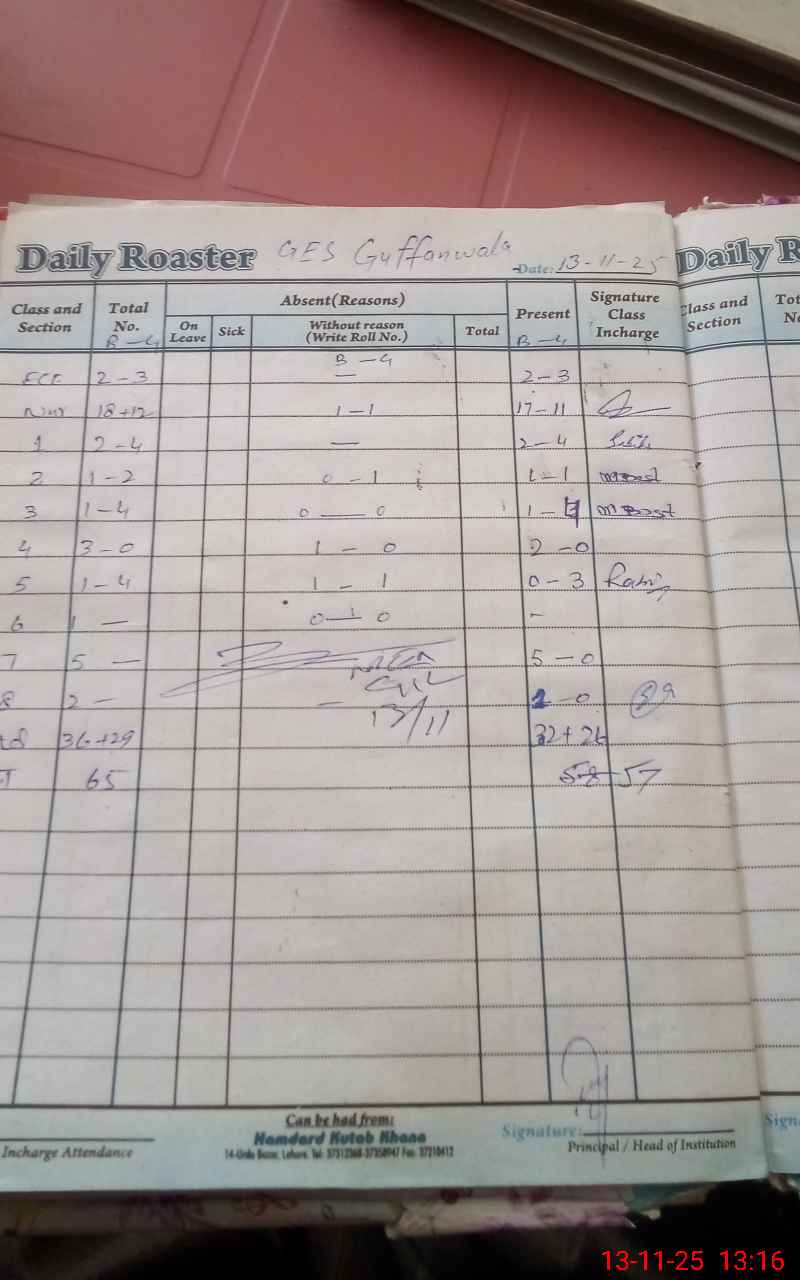 Daily Roaster GES Guffanwala Date: 13-11-25
Class and Section Total No. Absent(Reasons) Present Signature Class Incharge
On Leave Sick Without reason (Write Roll No.) Total
B-G B-G B-G
ECE 2-3 — 2-3
Nur 18+12 1-1 17-11
1 2-4 — 2-4
2 1-2 0-1 1-1
3 1-4 0—0 1-4
4 3-0 1-0 2-0
5 1-4 1-1 0-3
6 1 — 0—0 -
7 5 — 5-0
8 2 - - -0
36+29 32+26
65 58 57
13/11
Can be had from:
Hamdard Kutab Khana
14-Urdu Bazar, Lahore.
Incharge Attendance
Signature:
Principal / Head of Institution
Daily R
Class and Section
Signa
13-11-25 13:16